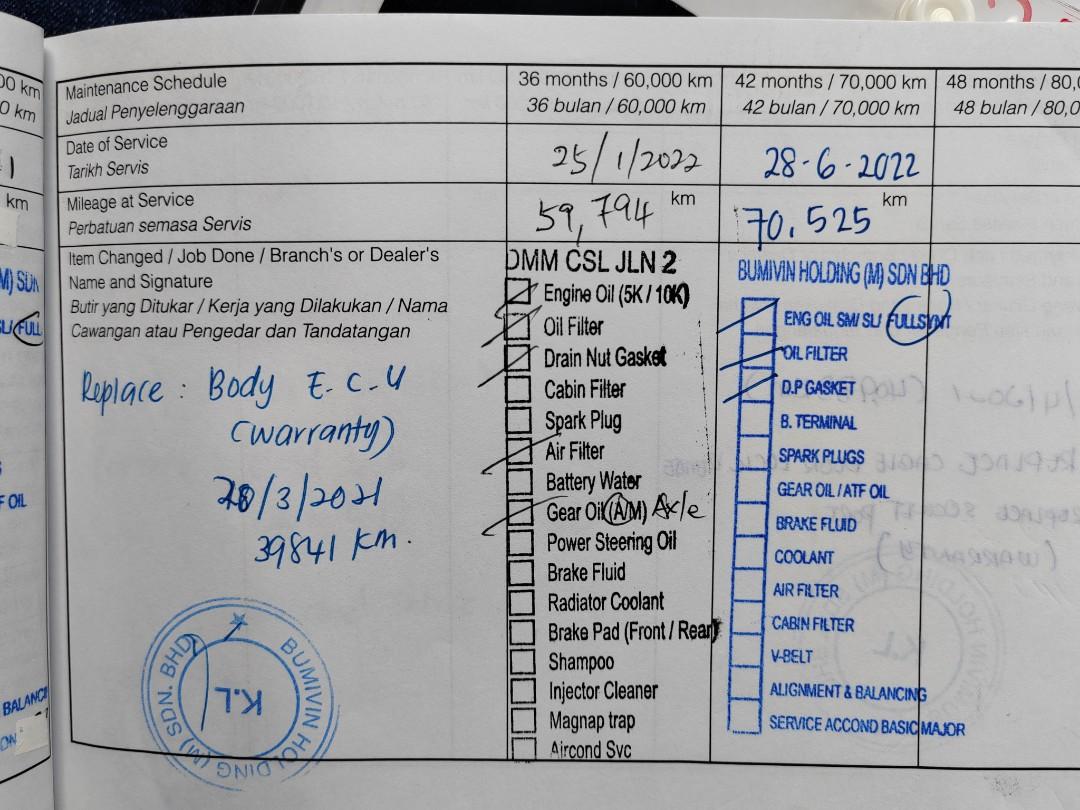 00 km
0 km
1
km
M) SDN
SL/ FULL
F OIL
BALANC
Maintenance Schedule
Jadual Penyelenggaraan
36 months / 60,000 km
36 bulan / 60,000 km
42 months / 70,000 km
42 bulan / 70,000 km
48 months / 80,0
48 bulan / 80,0
Date of Service
Tarikh Servis
25/1/2022
28-6-2022
Mileage at Service
Perbatuan semasa Servis
59,794 km
70,525 km
Item Changed / Job Done / Branch's or Dealer's
Name and Signature
Butir yang Ditukar / Kerja yang Dilakukan / Nama
Cawangan atau Pengedar dan Tandatangan
Replace : Body E.C.U
(warranty)
20/3/2021
39841 km.
BUMIVIN HOLDING (M) SDN. BHD
K.L
DMM CSL JLN 2
Engine Oil (5K / 10K)
Oil Filter
Drain Nut Gasket
Cabin Filter
Spark Plug
Air Filter
Battery Water
Gear Oil (A/M) Axle
Power Steering Oil
Brake Fluid
Radiator Coolant
Brake Pad (Front / Rear)
Shampoo
Injector Cleaner
Magnap trap
Aircond Svc
BUMIVIN HOLDING (M) SDN BHD
ENG OIL SM/ SL/ FULLSYNT
OIL FILTER
D.P GASKET
B. TERMINAL
SPARK PLUGS
GEAR OIL / ATF OIL
BRAKE FLUID
COOLANT
AIR FILTER
CABIN FILTER
V-BELT
ALIGNMENT & BALANCING
SERVICE ACCOND BASIC MAJOR